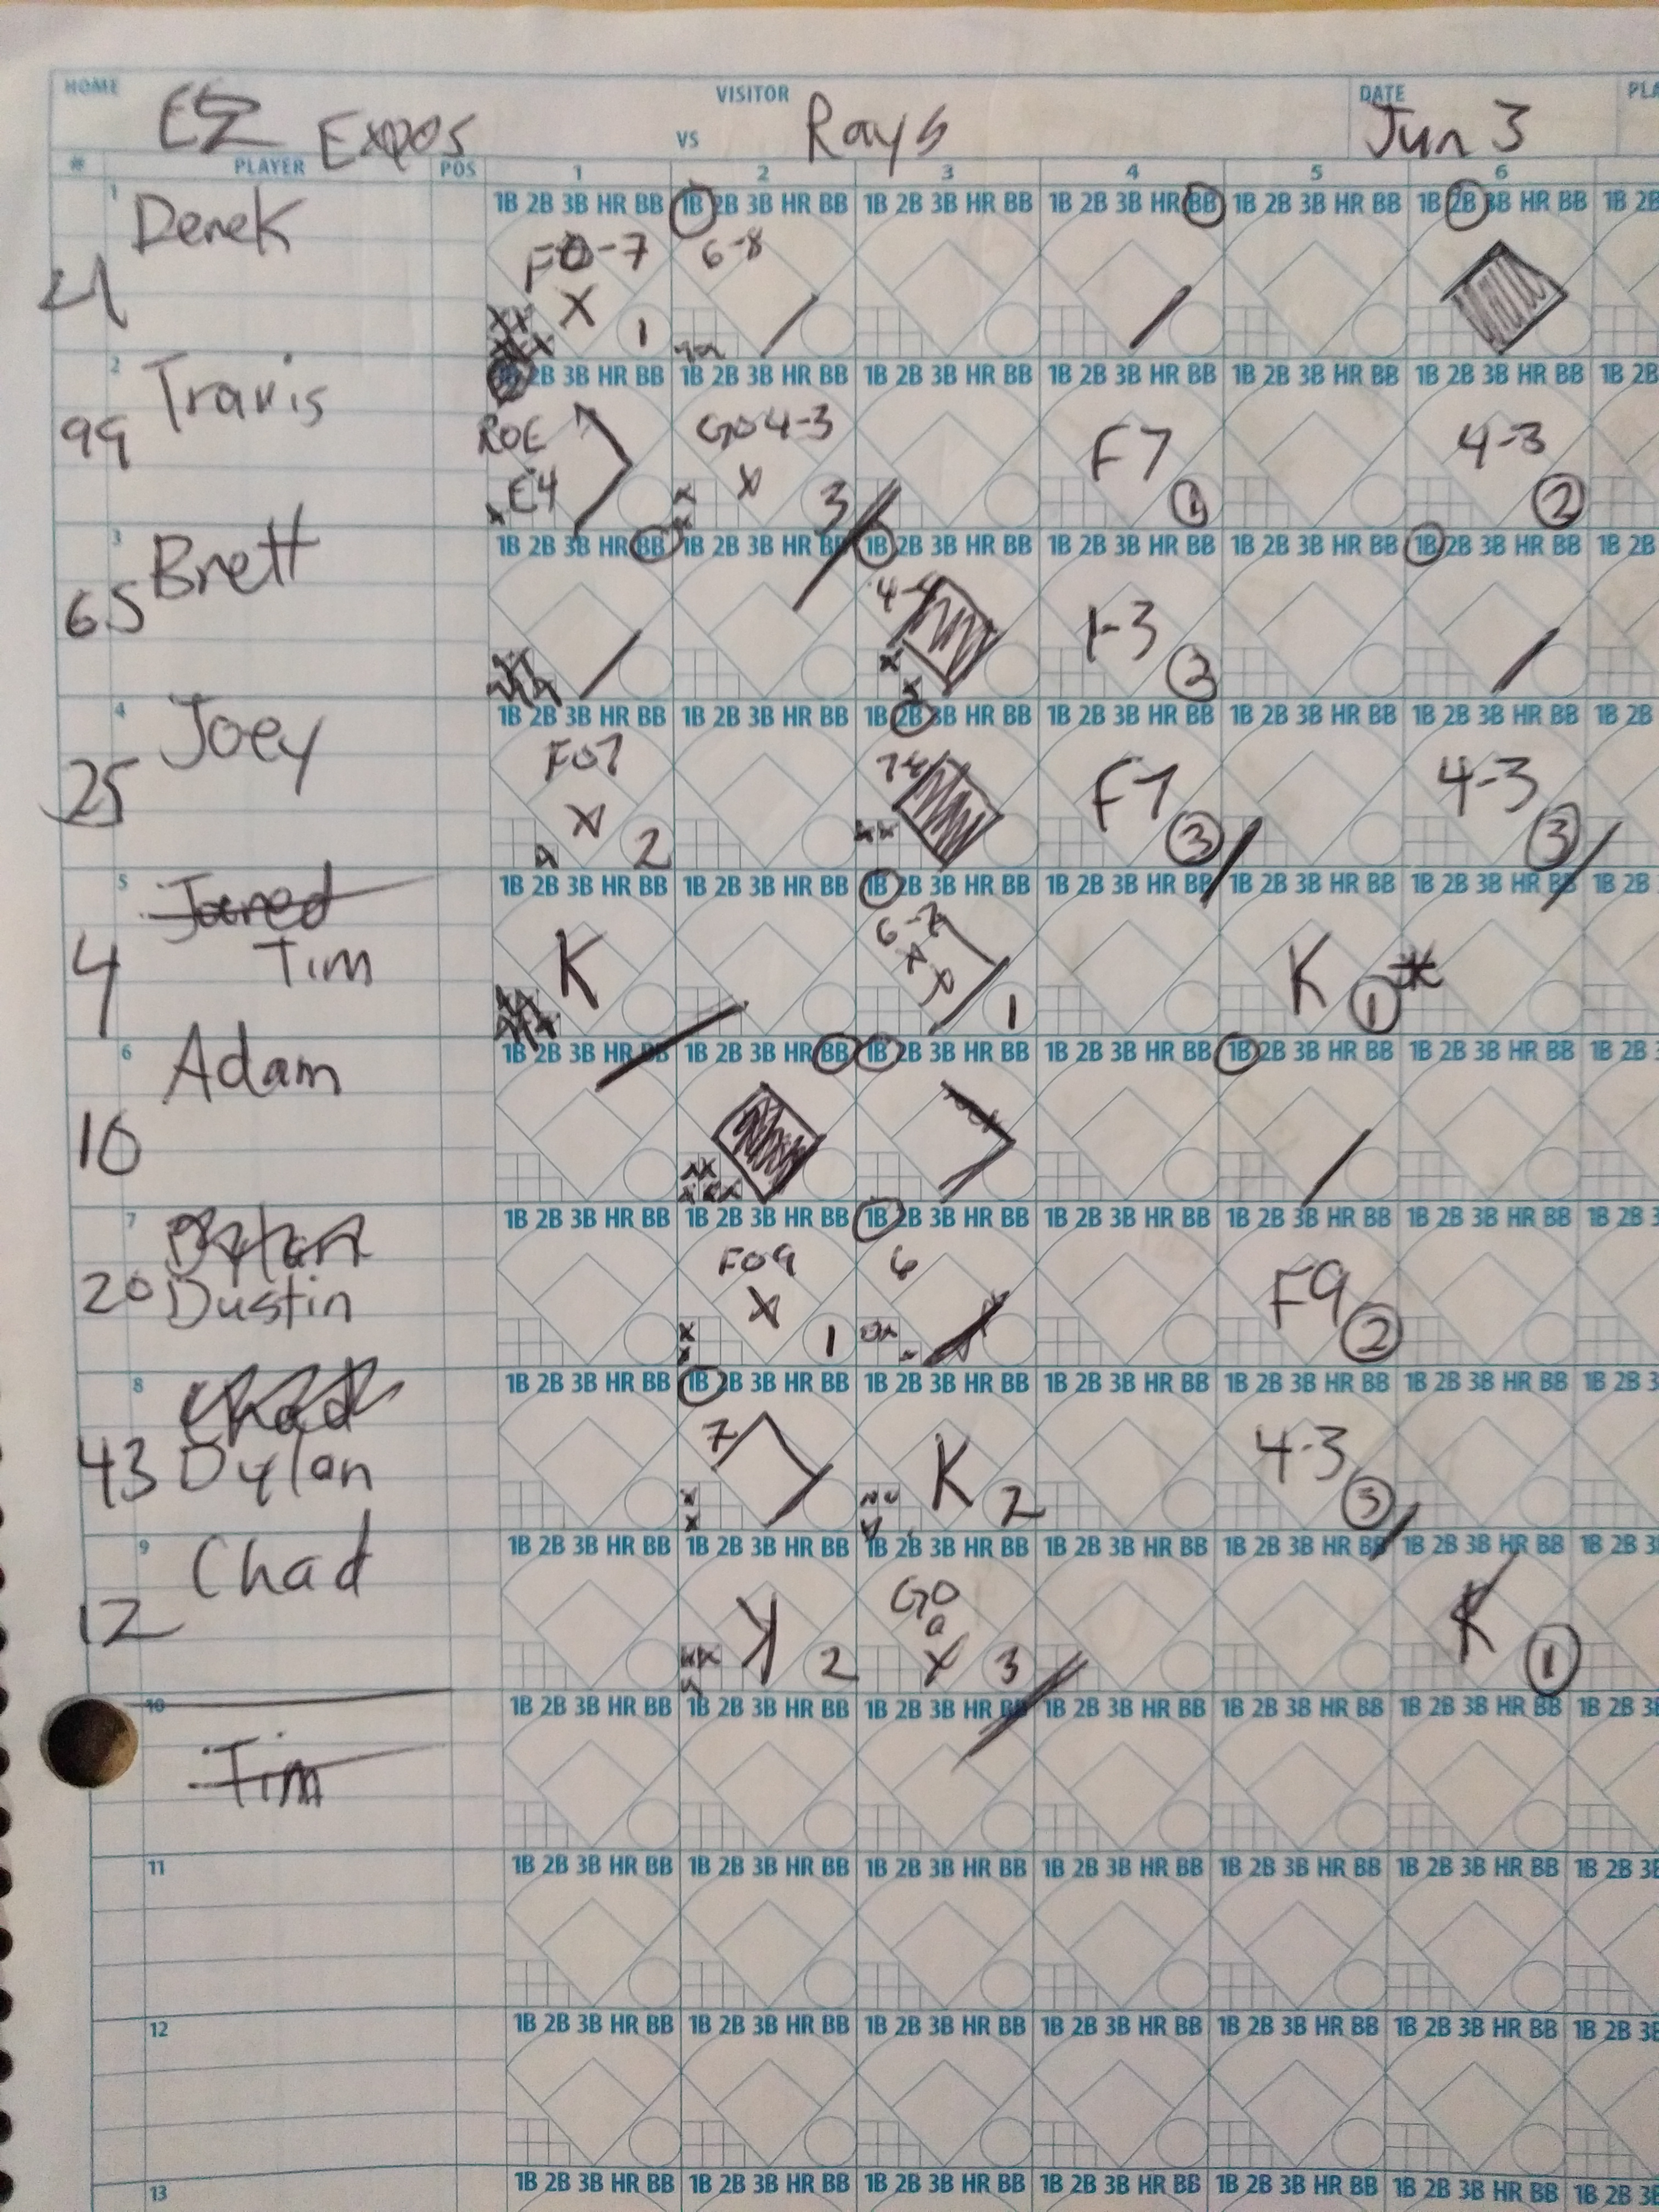 HOME EZ Expos VISITOR VS Rays DATE Jun 3 PLA
# PLAYER POS 1 2 3 4 5 6
1 Derek 1B 2B 3B HR BB 1B 2B 3B HR BB 1B 2B 3B HR BB 1B 2B 3B HR BB 1B 2B 3B HR BB 1B 2B 3B HR BB 1B 2B
21 FO-7 X 1 6-8
2 Travis 2B 3B HR BB 1B 2B 3B HR BB 1B 2B 3B HR BB 1B 2B 3B HR BB 1B 2B 3B HR BB 1B 2B 3B HR BB 1B 2B
99 ROE E4 GO 4-3 X 3 F7 1 4-3 2
3 Brett 1B 2B 3B HR BB 1B 2B 3B HR BB 1B 2B 3B HR BB 1B 2B 3B HR BB 1B 2B 3B HR BB 1B 2B 3B HR BB 1B 2B
65 1-3 2
4 Joey 1B 2B 3B HR BB 1B 2B 3B HR BB 1B 2B 3B HR BB 1B 2B 3B HR BB 1B 2B 3B HR BB 1B 2B 3B HR BB 1B 2B
25 FO7 X 2 F7 3 4-3 3
5 Jared 1B 2B 3B HR BB 1B 2B 3B HR BB 1B 2B 3B HR BB 1B 2B 3B HR BB 1B 2B 3B HR BB 1B 2B 3B HR BB 1B 2B
4 Tim K 1 K 1 *
6 Adam 1B 2B 3B HR BB 1B 2B 3B HR BB 1B 2B 3B HR BB 1B 2B 3B HR BB 1B 2B 3B HR BB 1B 2B 3B HR BB 1B 2B
10
7 Dylan 1B 2B 3B HR BB 1B 2B 3B HR BB 1B 2B 3B HR BB 1B 2B 3B HR BB 1B 2B 3B HR BB 1B 2B 3B HR BB 1B 2B 3
20 Dustin FO9 X 1 6 F9 2
8 Chad 1B 2B 3B HR BB 1B 2B 3B HR BB 1B 2B 3B HR BB 1B 2B 3B HR BB 1B 2B 3B HR BB 1B 2B 3B HR BB 1B 2B 3
43 Dylan 7 K 2 4-3 3
9 Chad 1B 2B 3B HR BB 1B 2B 3B HR BB 1B 2B 3B HR BB 1B 2B 3B HR BB 1B 2B 3B HR BB 1B 2B 3B HR BB 1B 2B 3
12 K 2 GO X 3 K 1
10 1B 2B 3B HR BB 1B 2B 3B HR BB 1B 2B 3B HR BB 1B 2B 3B HR BB 1B 2B 3B HR BB 1B 2B 3B HR BB 1B 2B 3
Tim
11 1B 2B 3B HR BB 1B 2B 3B HR BB 1B 2B 3B HR BB 1B 2B 3B HR BB 1B 2B 3B HR BB 1B 2B 3B HR BB 1B 2B 3B
12 1B 2B 3B HR BB 1B 2B 3B HR BB 1B 2B 3B HR BB 1B 2B 3B HR BB 1B 2B 3B HR BB 1B 2B 3B HR BB 1B 2B 3B
13 1B 2B 3B HR BB 1B 2B 3B HR BB 1B 2B 3B HR BB 1B 2B 3B HR BB 1B 2B 3B HR BB 1B 2B 3B HR BB 1B 2B 3B